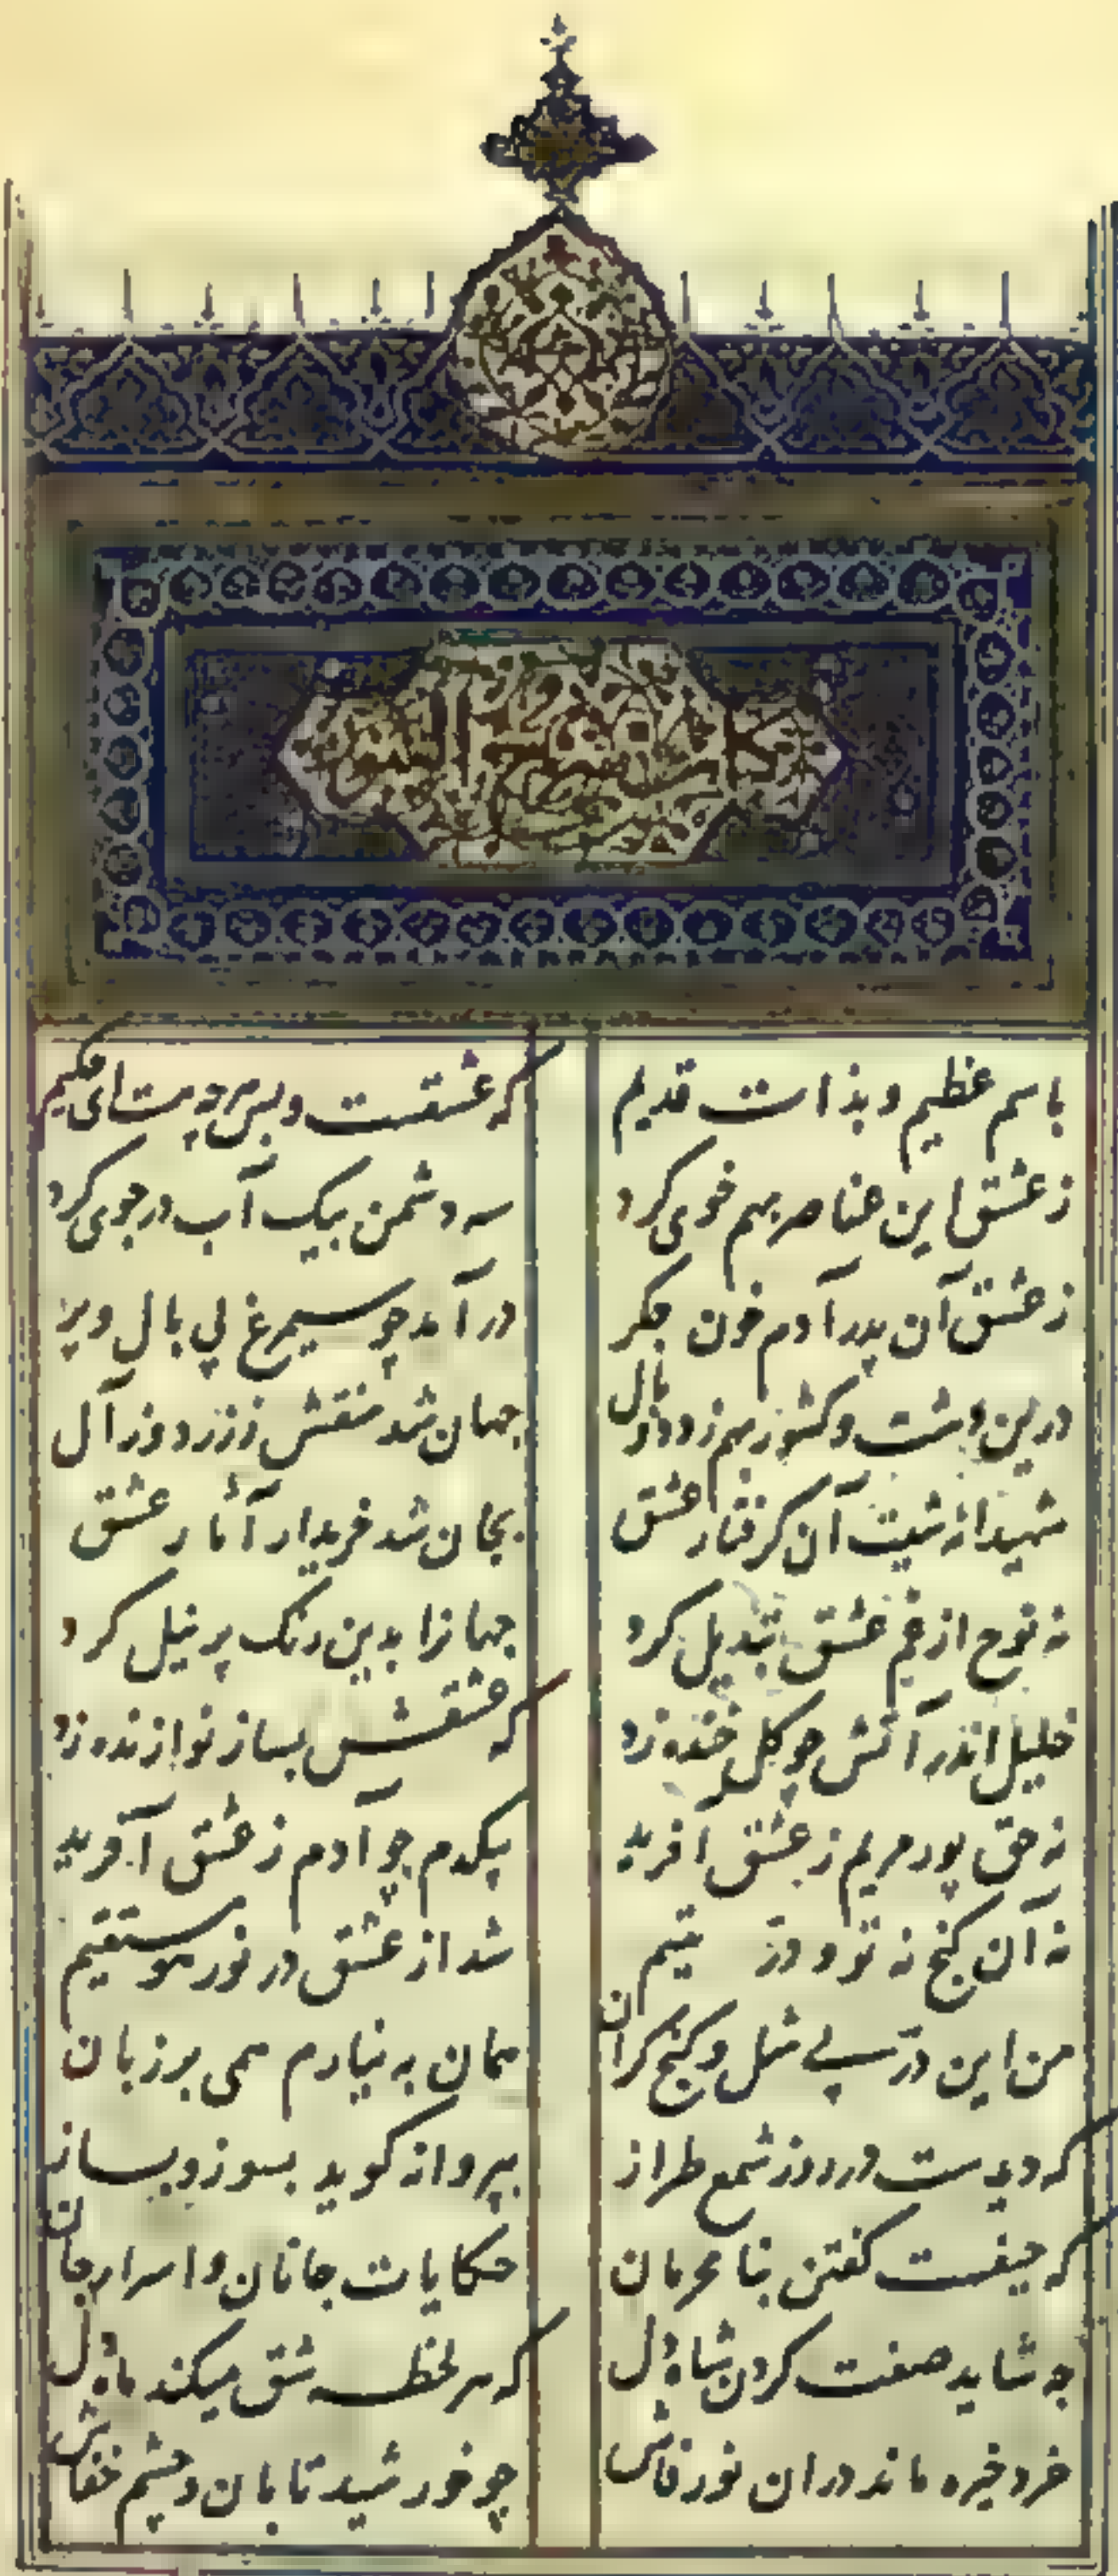 باسم عظیم و بذات قدیم
که عشقست و بس هرچه هست ای حکیم
ز عشق این عناصر بهم خوی کرد
سه دشمن بیک آب در جوی کرد
ز عشق آن پدر آدم خون جکر
درآمد چو سیمرغ بی بال و پر
درین دشت و کشور بهم زد دو بال
جهان شد منقش ززر دوز آل
شهیدانه شیت آن کرفتار عشق
بجان شد خریدار آثار عشق
نه نوح از غم عشق تبدیل کرد
جهانرا بدین رنک پر نیل کرد
خلیل اندر آتش چو کل خنده زد
که عشقش بساز نوازنده زد
نه حق پور مریم ز عشق آفرید
بیکدم چو آدم ز عشق آفرید
نه آن کنج نه تو و در یتیم
شد از عشق در نور هو مستقیم
من این در بی مثل و کنج کران
همان به نیارم همی بر زبان
که دیدست در روز شمع طراز
بپروانه کوید بسوز و بساز
که حیفست کفتن بنا محرمان
حکایات جانان و اسرار جان
چه شاید صفت کردن شاه دل
که هر لحظه شق میکند ماه دل
خرد خیره ماند در ان نور فاش
چو خورشید تابان و چشم خفاش